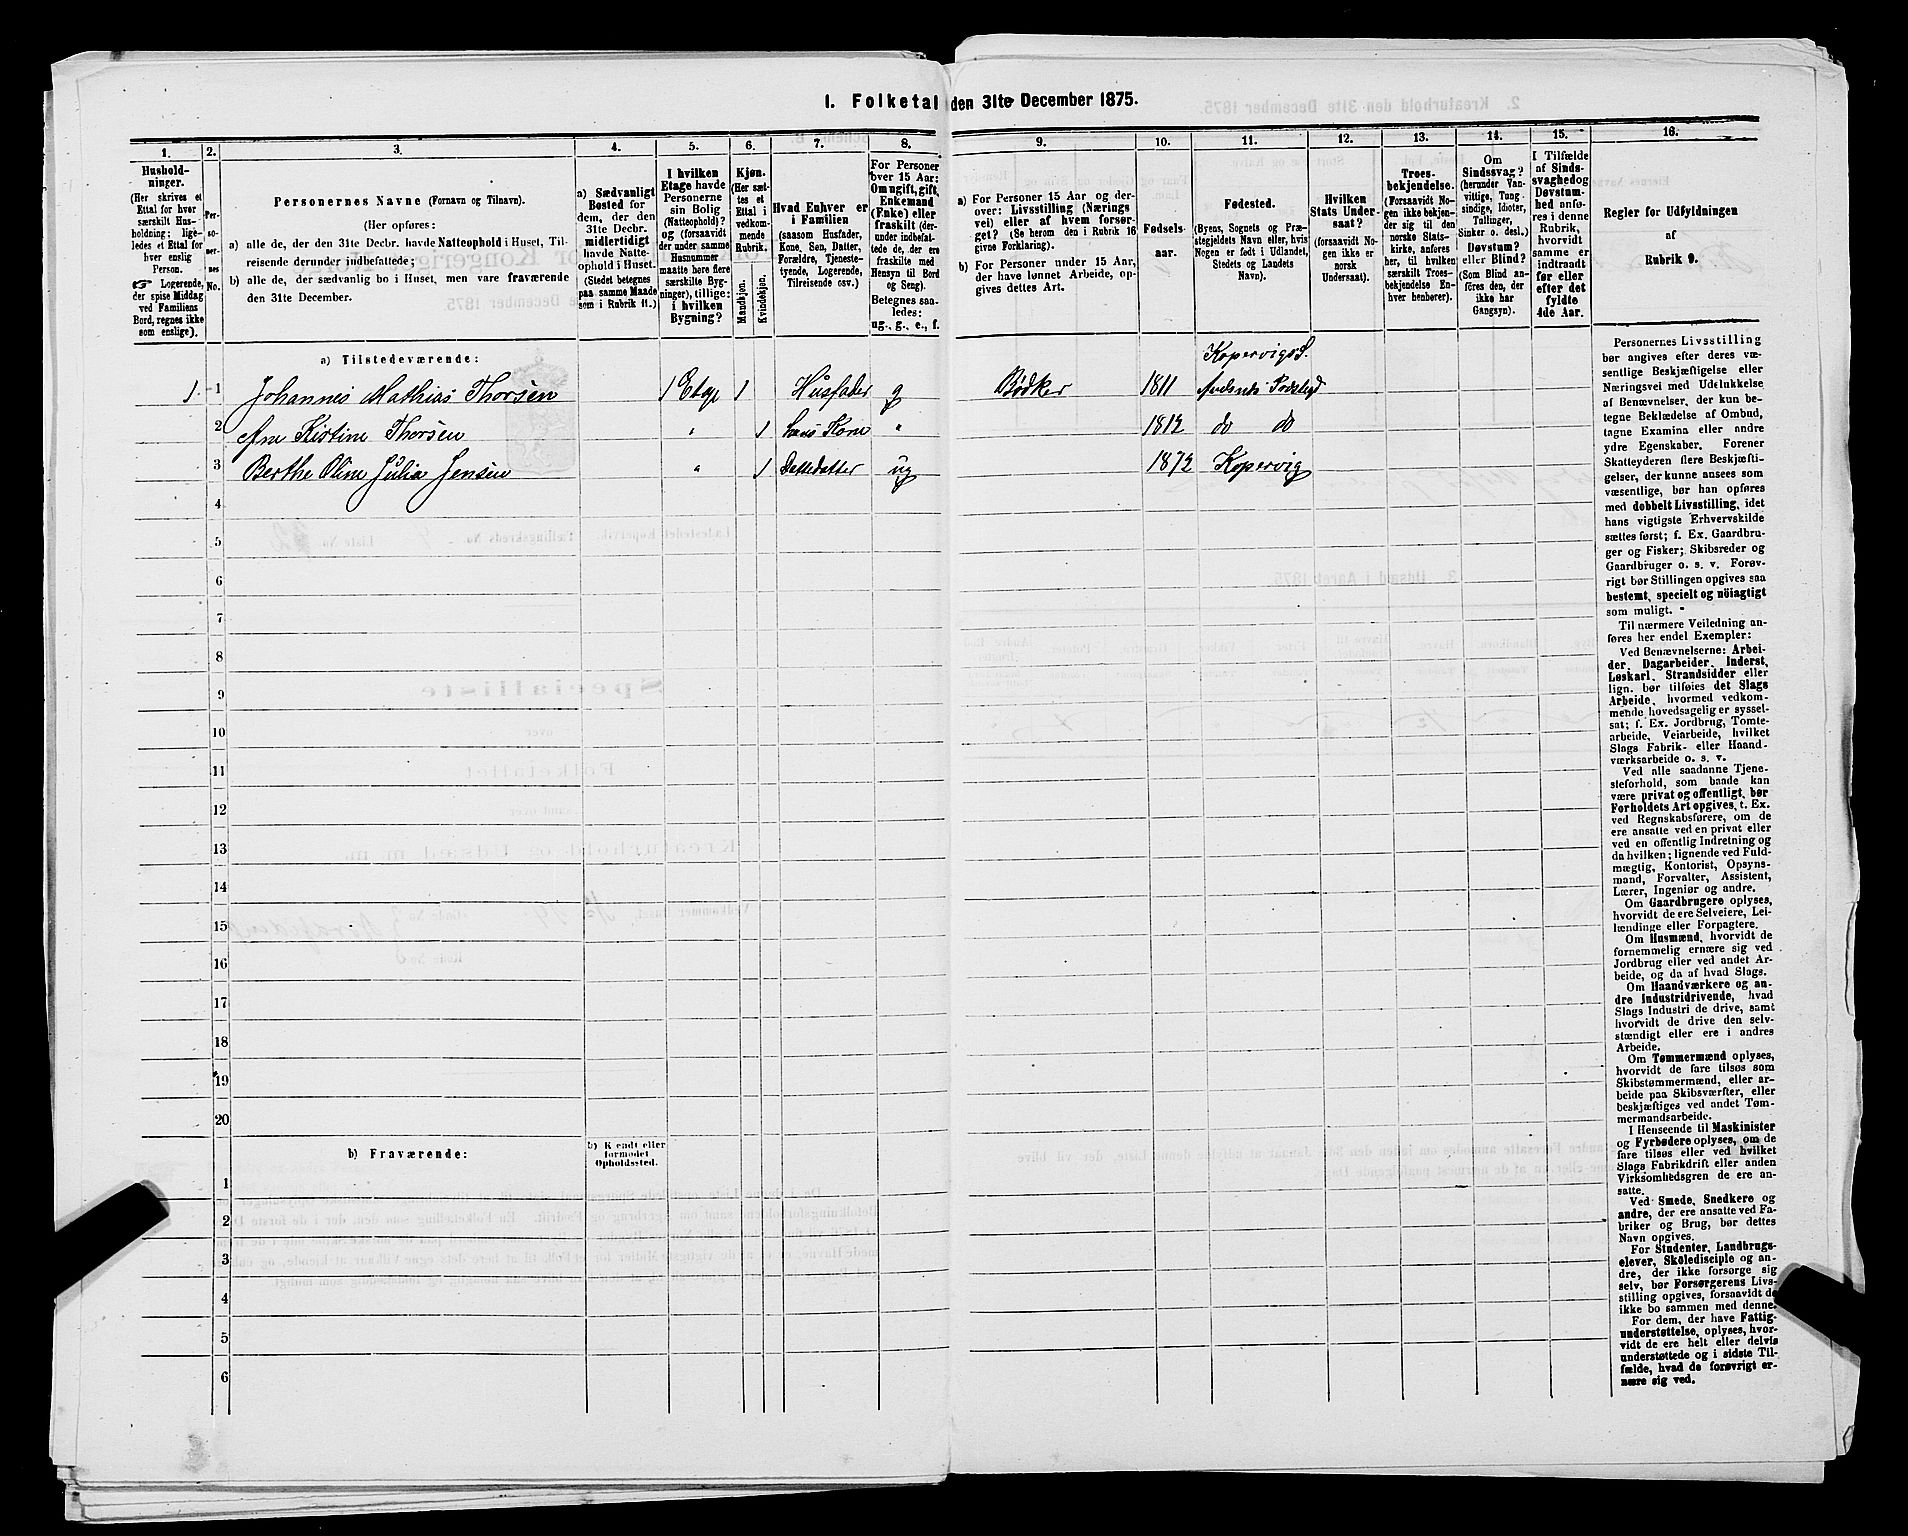 1. Folketal den 31te December 1875.
1. 2. 3. 4. 5. 6. 7. 8. 9. 10. 11. 12. 13. 14. 15. 16.
Hushold-
ninger.
(Her skrives et
Ettal for hver
særskilt Hus-
holdning; lige-
ledes et Ettal for
hver enslig
Person.
☞ Logerende,
der spise Middag
ved Familiens
Bord, regnes ikke
som enslige).
Per-
so-
ner-
nes
No.
Personernes Navne (Fornavn og Tilnavn).
(Her opføres:
a) alle de, der den 31te Decbr. havde Natteophold i Huset, Til-
reisende derunder indbefattede;
b) alle de, der sædvanlig bo i Huset, men vare fraværende
den 31te December.
a) Sædvanligt
Bosted for
dem, der den
31te Decbr.
midlertidigt
havde Natte-
ophold i Huset.
(Stedet betegnes
paa samme Maade
som i Rubrik 11.)
I hvilken
Etage havde
Personerne
sin Bolig
(Natteophold)?
og (forsaavidt
der under samme
Husnummer
maatte være flere
særskilte Byg-
ninger), tillige:
i hvilken
Bygning?
Kjøn.
(Her sæt-
tes et
Ettal i
vedkom-
mende
Rubrik.
Mandkjøn.
Kvindekjøn.
Hvad Enhver er
i Familien
(saasom Husfader,
Kone, Søn, Datter,
Forældre, Tjeneste-
tyende, Logerende,
Tilreisende osv.)
For Personer
over 15 Aar:
Om ugift, gift,
Enkemand
(Enke) eller
fraskilt (der-
under indbefat-
tede de, der ere
fraskilte med
Hensyn til Bord
og Seng).
Betegnes saa-
ledes:
ug., g., e., f.
a) For Personer 15 Aar og der-
over: Livsstilling (Nærings-
vei) eller af hvem forsør-
get? (Se herom den i Rubrik 16
givne Forklaring).
b) For Personer under 15 Aar,
der have lønnet Arbeide, op-
gives dettes Art.
Fødsels-
aar.
Fødested.
(Byens, Sognets og Præ-
stegjeldets Navn eller, hvis
Nogen er født i Udlandet,
Stedets og Landets
Navn).
Hvilken
Stats Under-
saat?
(forsaavidt No-
gen ikke er
norsk
Undersaat).
Troes-
bekjendelse.
(Forsaavidt No-
gen ikke bekjen-
der sig til den
norske Stats-
kirke, anføres
her, til hvilken
særskilt Troes-
bekjendelse En-
hver henhører).
Om
Sindssvag?
(herunder Van-
vittige, Tung-
sindige, Idioter,
Tullinger,
Sinker o. desl.)
Døvstum?
eller Blind?
(Som Blind an-
føres den, der
ikke har
Gangsyn).
I Tilfælde
af Sinds-
svaghed og
Døvstum-
hed anfø-
res i denne
Rubrik,
hvorvidt
samme er
indtraadt
før eller
efter det
fyldte
4de Aar.
Regler for Udfyldningen
af
Rubrik 9.
a) Tilstedeværende:
Kopervigs S.
1. 1 Johannes Mathias Thorsen 1 Etage 1 Husfader g Bødker 1811
2 Ane Kistine Thorsen " 1 hans Kone " 1812 do do
3 Berthe Oline Julia Jensen " 1 Datterdatter ug 1872 Kopervig
4
5
6
7
8
9
10
11
12
13
14
15
16
17
18
19
20
b) Fraværende:
b) Kjendt eller
formodet
Opholdssted.
1
2
3
4
5
6
Personernes Livsstilling
bør angives efter deres væ-
sentlige Beskjæftigelse eller
Næringsvei med Udelukkelse
af Benævnelser, der kun be-
tegne Beklædelse af Ombud,
tagne Examina eller andre
ydre Egenskaber. Forener
Skatteyderen flere Beskjæfti-
gelser, der kunne ansees som
væsentlige, bør han opføres
med dobbelt Livsstilling, idet
hans vigtigste Erhvervskilde
sættes først; f. Ex. Gaardbru-
ger og Fisker; Skibsreder og
Gaardbruger o. s. v. Forøv-
rigt bør Stillingen opgives saa
bestemt, specielt og nöiagtigt
som muligt.
Til nærmere Veiledning an-
føres her endel Exempler:
Ved Benævnelserne: Arbei-
der, Dagarbeider, Inderst,
Løskarl, Strandsidder eller
lign. bør tilføies det Slags
Arbeide, hvormed vedkom-
mende hovedsagelig er syssel-
sat; f. Ex. Jordbrug, Tomte-
arbeide, Veiarbeide, hvilket
Slags Fabrik- eller Haand-
værksarbeide o. s. v.
Ved alle saadanne Tjene-
steforhold, som baade kan
være privat og offentligt, bør
Forholdets Art opgives, t. Ex.
ved Regnskabsførere, om de
ere ansatte ved en privat eller
ved en offentlig Indretning og
da hvilken; lignende ved Fuld-
mægtig, Kontorist, Opsyns-
mand, Forvalter, Assistent,
Lærer, Ingeniør og andre.
Om Gaardbrugere oplyses,
hvorvidt de ere Selveiere, Lei-
lændinge eller Forpagtere.
Om Husmænd, hvorvidt de
fornemmelig ernære sig ved
Jordbrug eller ved andet Ar-
beide, og da af hvad Slags.
Om Haandværkere og an-
dre Industridrivende, hvad
Slags Industri de drive, samt
hvorvidt de drive den selv-
stændigt eller ere i andres
Arbeide.
Om Tømmermænd oplyses,
hvorvidt de fare tilsøs som
Skibstømmermænd, eller ar-
beide paa Skibsværfter, eller
beskjæftiges ved andet Tøm-
mermandsarbeide.
I Henseende til Maskinister
og Fyrbødere oplyses, om de
fare tilsøs eller ved hvilket
Slags Fabrikdrift eller anden
Virksomhedsgren de ere an-
satte.
Ved Smede, Snedkere og
andre, der ere ansatte ved Fa-
briker og Brug, bør dettes
Navn opgives.
For Studenter, Landbrugs-
elever, Skoledisciple og an-
dre, der ikke forsørge sig
selv, bør Forsørgerens Livs-
stilling opgives, forsaavidt de
ikke bo sammen med denne.
For dem, der have Fattig-
understøttelse, oplyses, hvor-
vidt de ere helt eller delvis
understøttede og i sidste Til-
fælde, hvad de forøvrigt er-
nære sig ved.